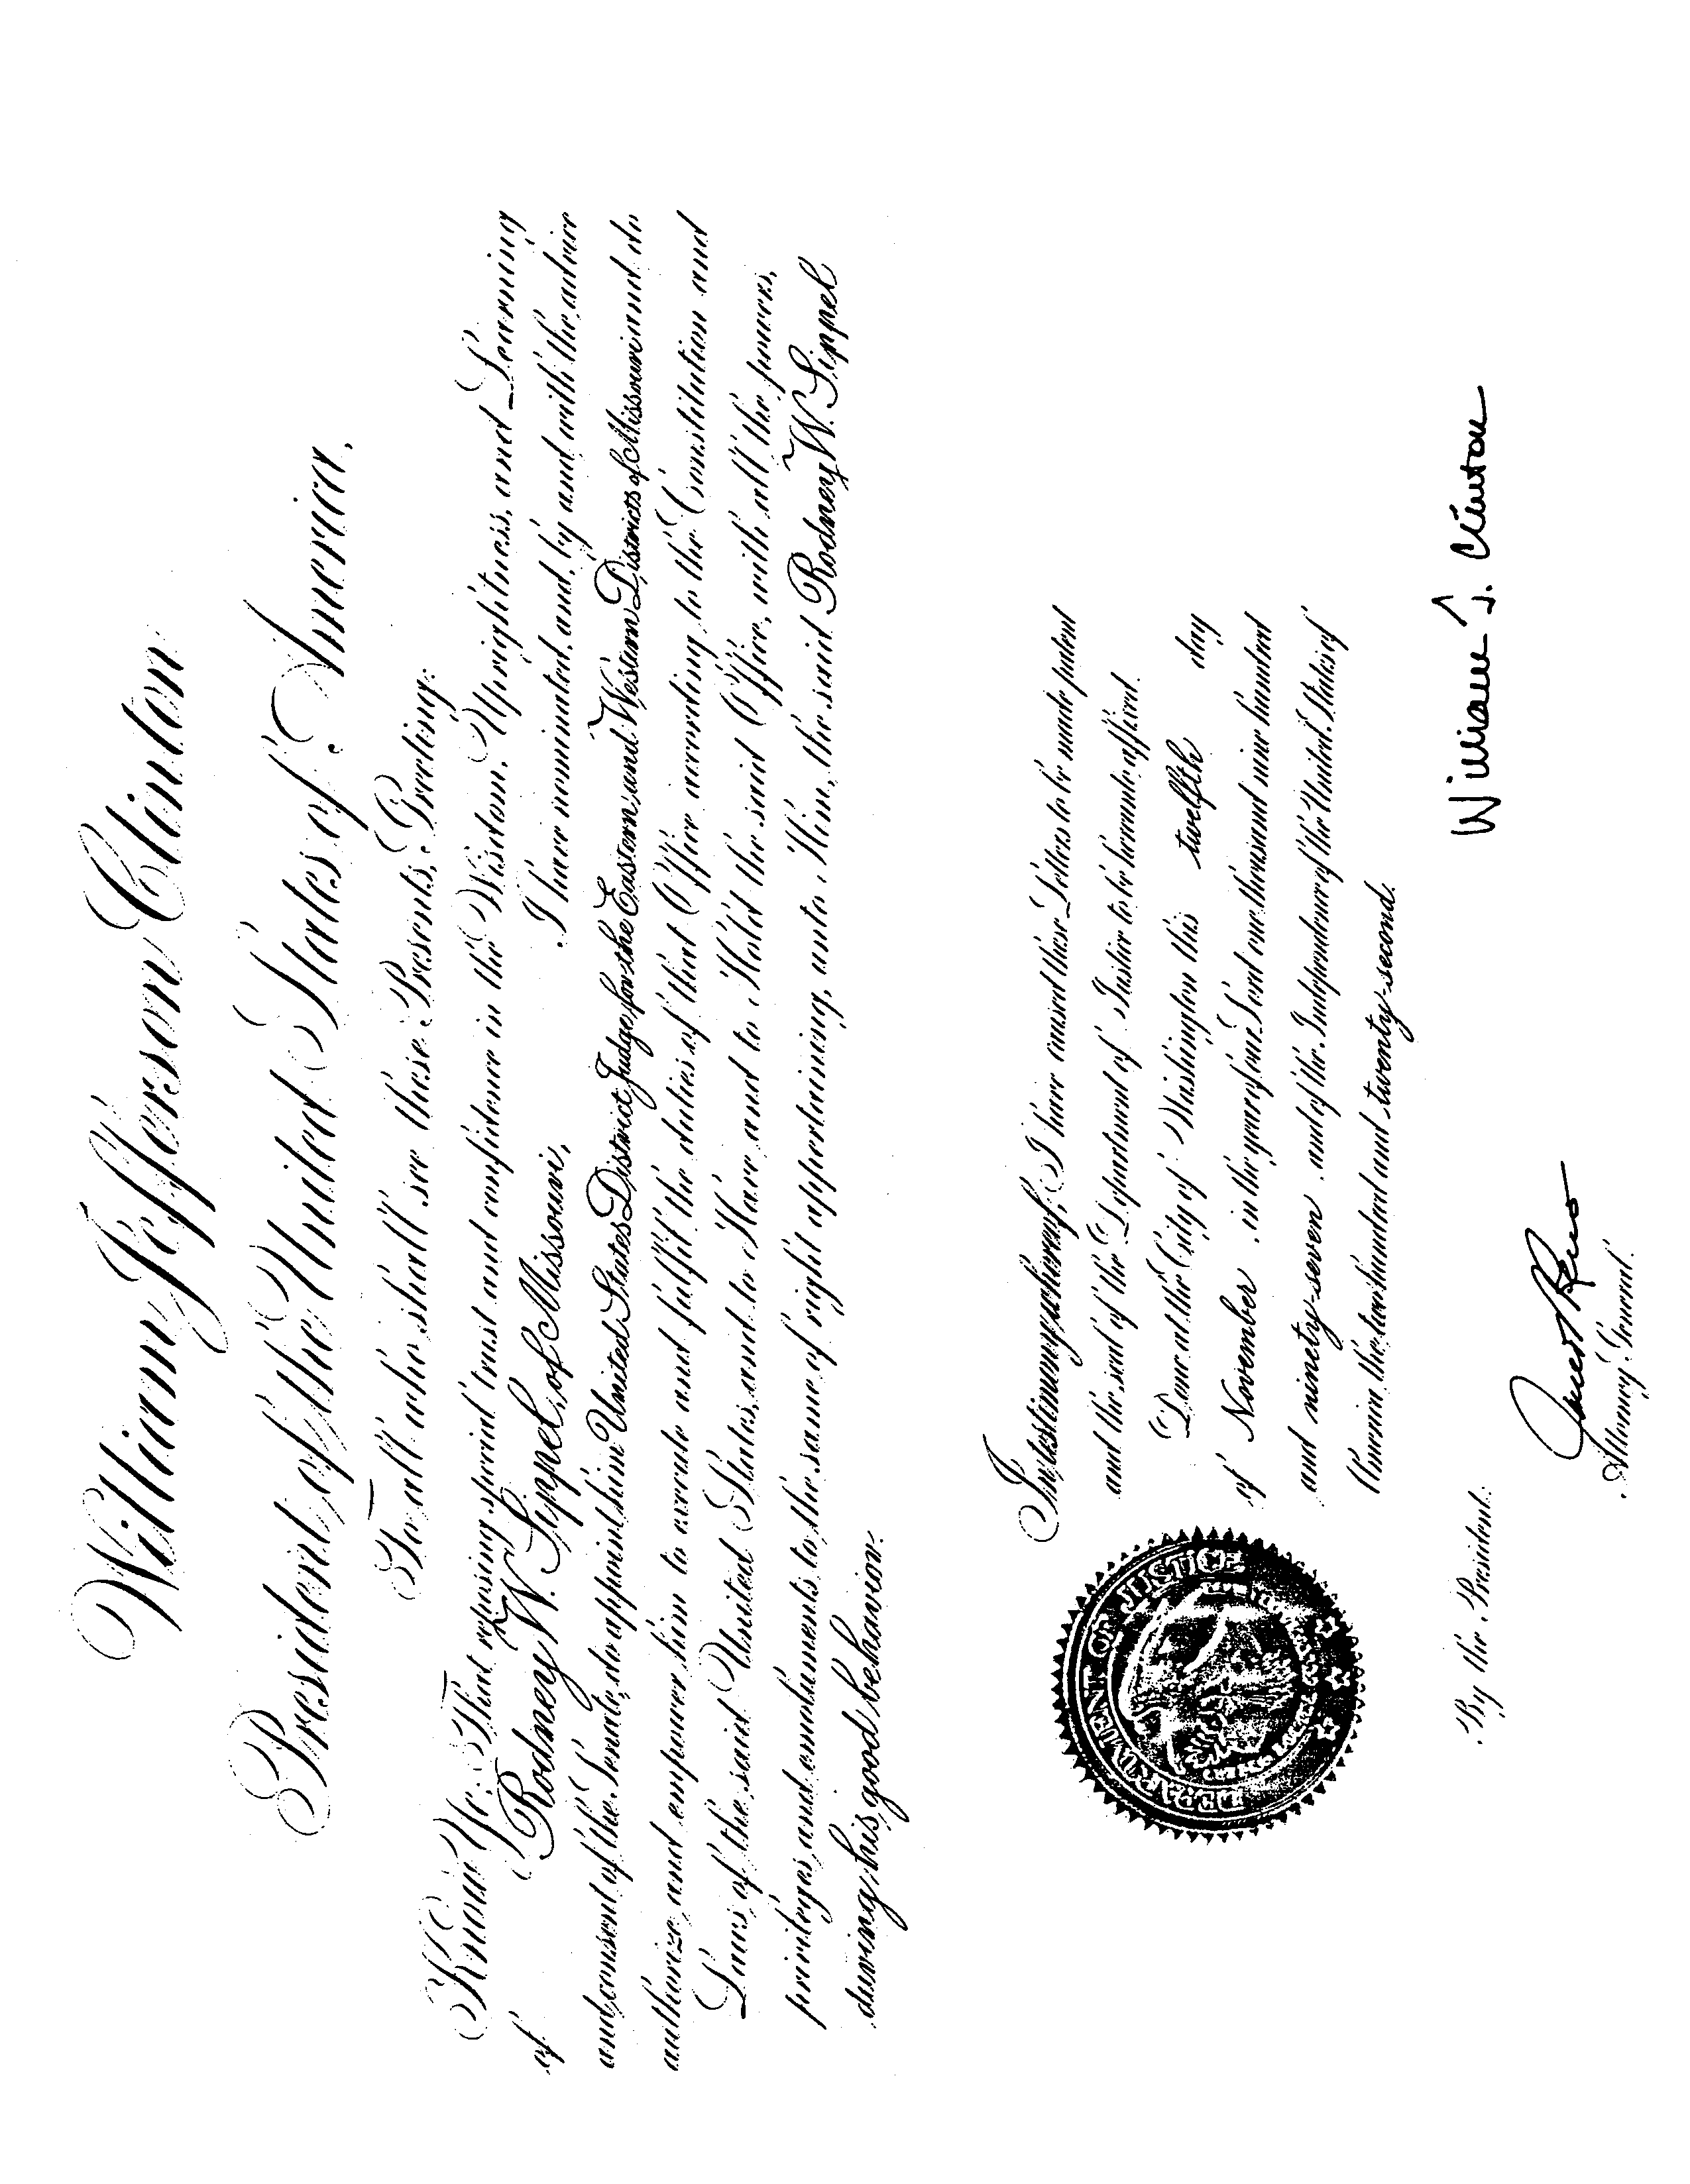 William Jefferson Clinton
President of the United States of America.
To all who shall see these Presents, Greeting:
Know Ye: That reposing special trust and confidence in the Wisdom, Uprightness, and Learning
of Rodney W. Sippel, of Missouri, I have nominated, and, by and with the advice
and consent of the Senate, do appoint him United States District Judge for the Eastern and Western Districts of Missouri and do
authorize and empower him to execute and fulfil the duties of that Office according to the Constitution and
Laws of the said United States, and to Have and to Hold the said Office, with all the powers,
privileges and emoluments to the same of right appertaining, unto Him, the said Rodney W. Sippel
during his good behavior.
In testimony whereof, I have caused these Letters to be made patent
and the seal of the Department of Justice to be hereunto affixed.
Done at the City of Washington this twelfth day
of November in the year of our Lord one thousand nine hundred
and ninety-seven and of the Independence of the United States of
America the two hundred and twenty-second.
DEPARTMENT OF JUSTICE
William J. Clinton
By the President:
Janet Reno
Attorney General.